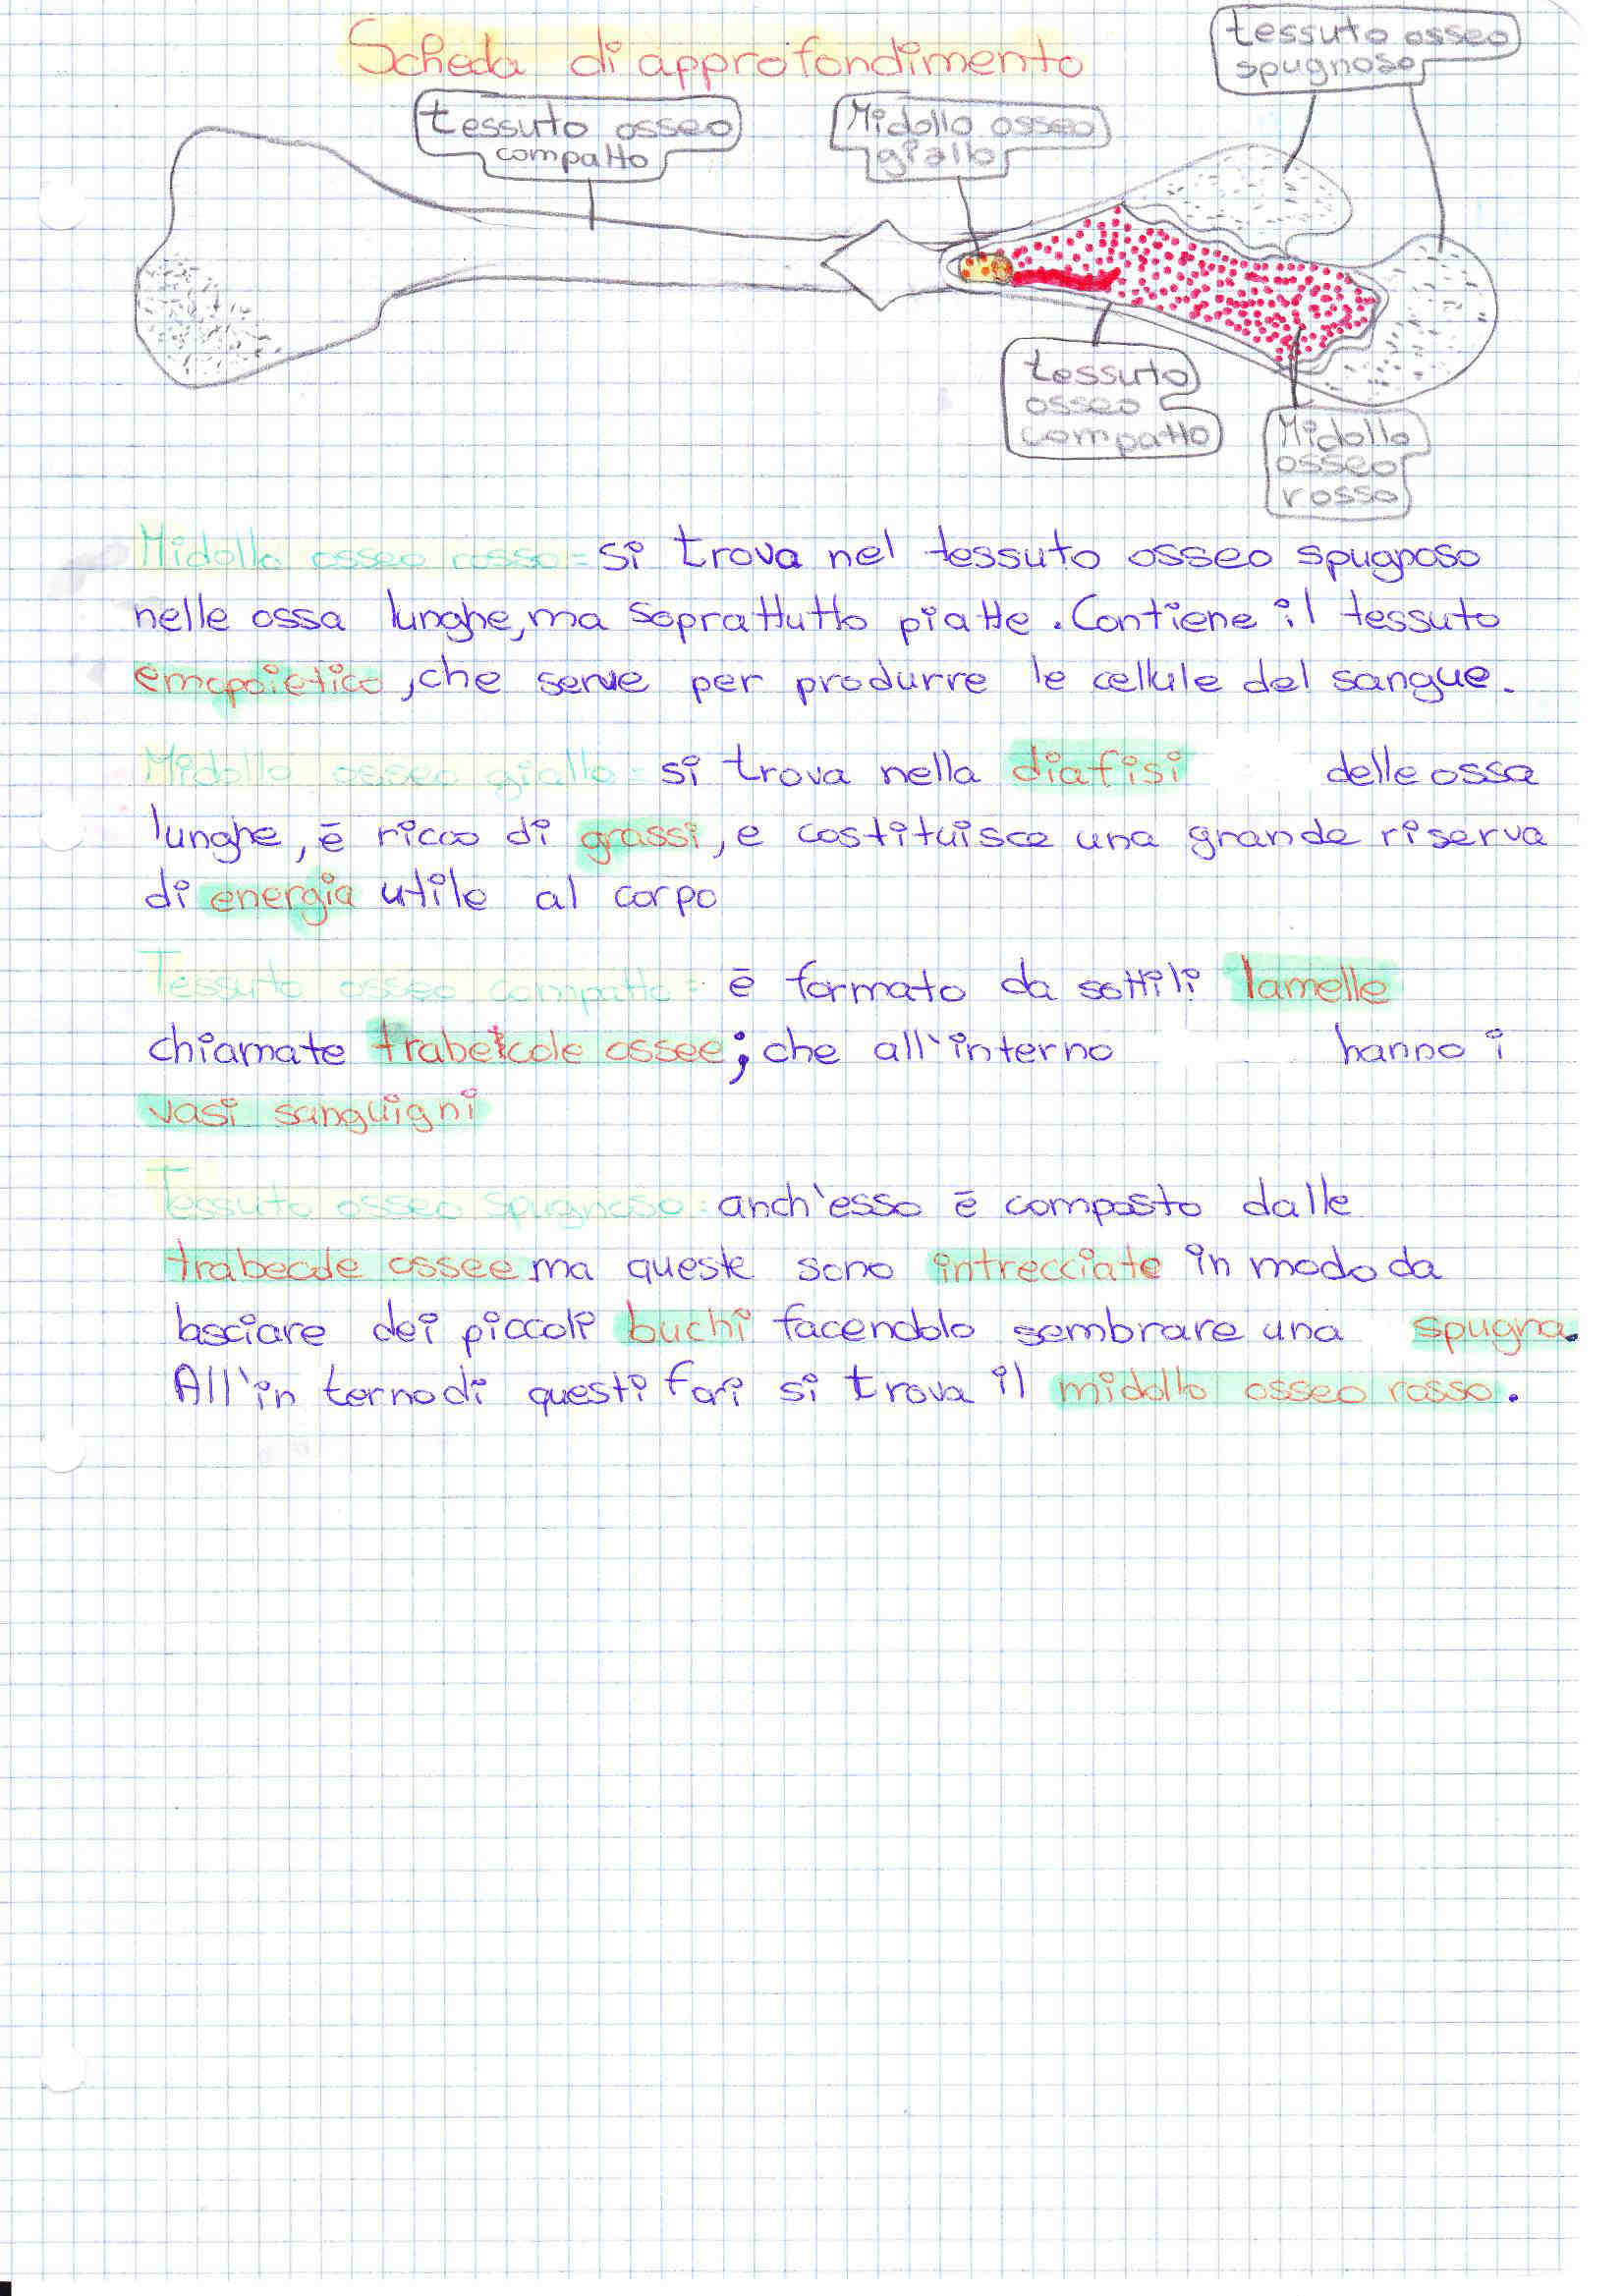 Scheda di approfondimento
tessuto osseo
spugnoso
tessuto osseo
compatto
Midollo osseo
giallo
tessuto
osseo
compatto
Midollo
osseo
rosso
Midollo osseo rosso = si trova nel tessuto osseo spugnoso
nelle ossa lunghe, ma soprattutto piatte. Contiene il tessuto
emopoietico, che serve per produrre le cellule del sangue.
Midollo osseo giallo = si trova nella diafisi delle ossa
lunghe, è ricco di grassi, e costituisce una grande riserva
di energia utile al corpo
Tessuto osseo compatto = è formato da sottili lamelle
chiamate trabecole ossee; che all'interno hanno i
vasi sanguigni
Tessuto osseo spugnoso = anch'esso è composto dalle
trabecole ossee ma queste sono intrecciate in modo da
lasciare dei piccoli buchi facendolo sembrare una spugna.
All'in terno di questi fori si trova il midollo osseo rosso.